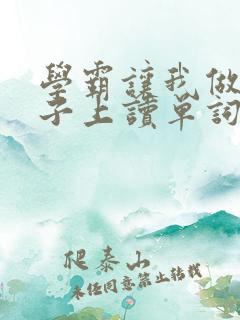 學霸讓我做
子上讀單詞
爬泰山
未任同意禁止转载